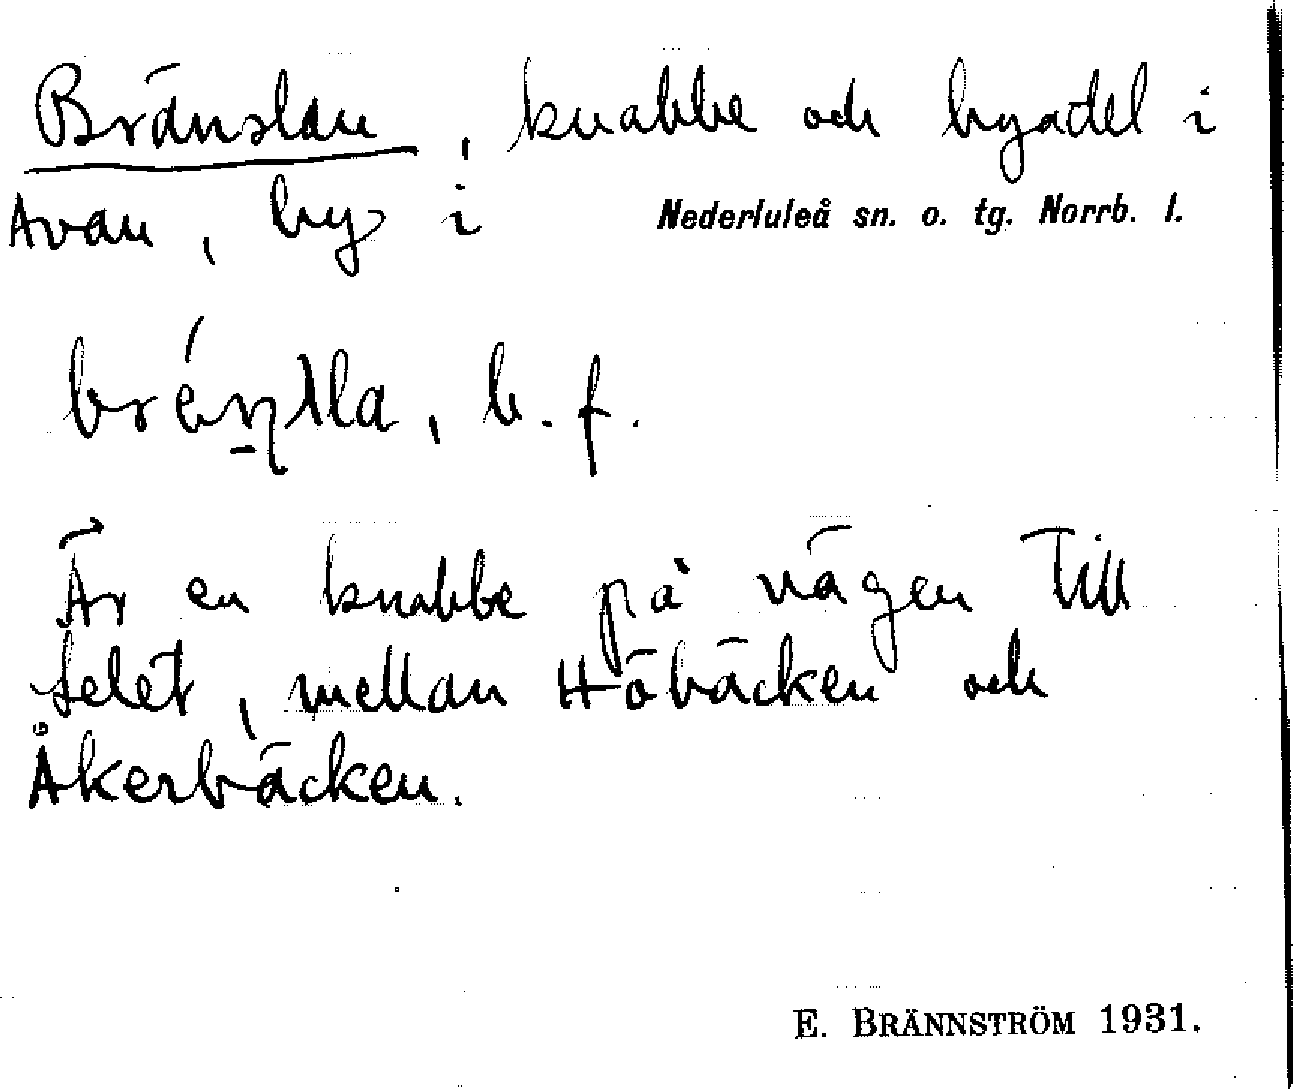 Bränslan, knabbe och byadel i
Avan, by i Nederluleå sn. o. tg. Norrb. l.
b. f.
Är en knabbe på vägen till
selet, mellan Höbäcken och
Åkerbäcken.
E. BRÄNNSTRÖM 1931.